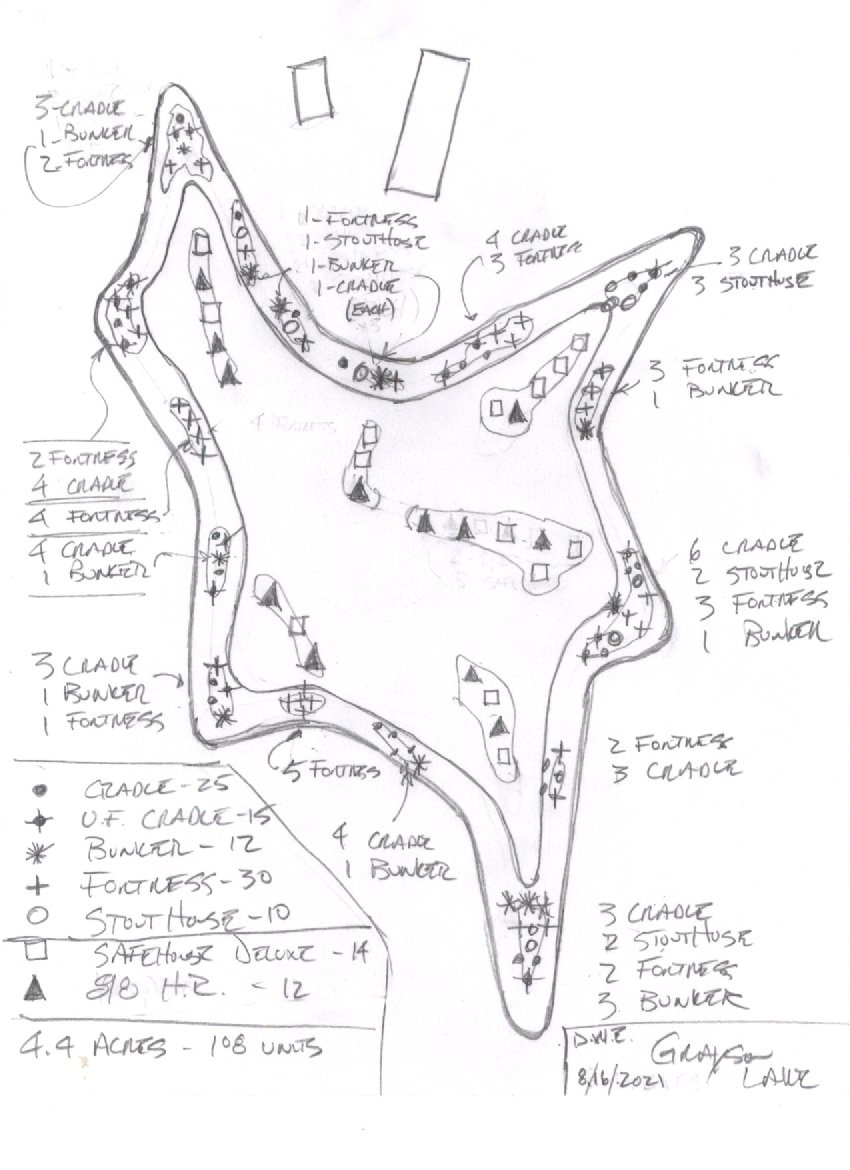 3-CRADLE
1-BUNKER
2-FORTRESS
1-FORTRESS
1-STOUTHOSE
1-BUNKER
1-CRADLE
(EACH)
4 CRADLE
3 FORTRESS
3 CRADLE
3 STOUTHUSE
3 FORTRESS
1 BUNKER
4 FORTRESS
2 FORTRESS
4 CRADLE
4 FORTRESS
4 CRADLE
1 BUNKER
6 CRADLE
2 STOUTHUSE
3 FORTRESS
1 BUNKER
3 CRADLE
1 BUNKER
1 FORTRESS
5 FORTRESS
2 FORTRESS
3 CRADLE
4 CRADLE
1 BUNKER
CRADLE-25
U.F. CRADLE-15
BUNKER - 12
FORTRESS-30
STOUTHOUSE-10
SAFEHOUSE DELUXE -14
H.R. - 12
3 CRADLE
2 STOUTHUSE
2 FORTRESS
3 BUNKER
4.4 ACRES - 108 UNITS
D.W.E.
8/16/2021
GRAYSON
LAKE